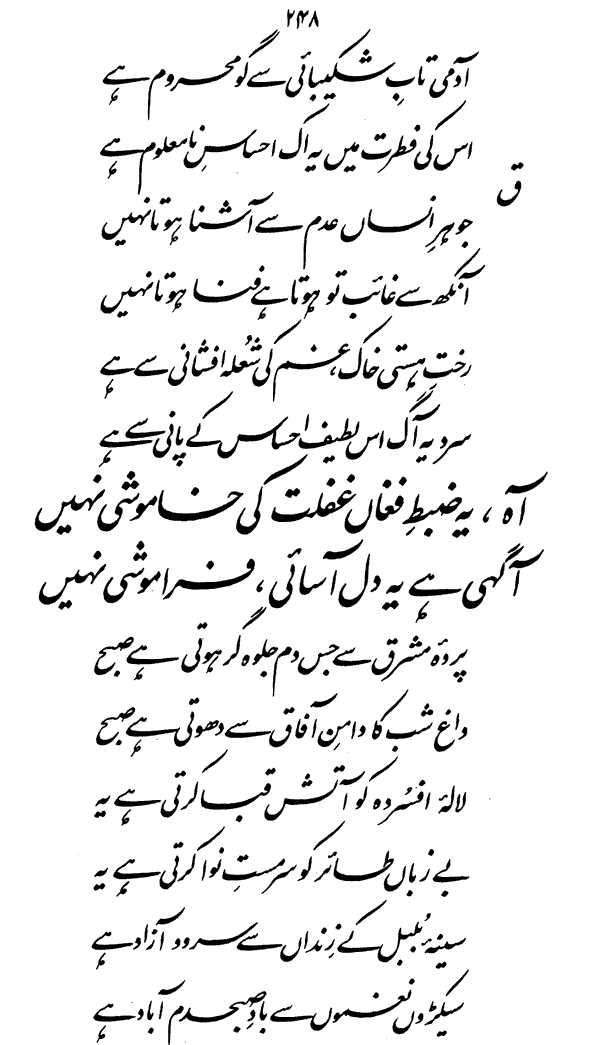 ۲۴۸
آدمی تابِ شکیبائی سے گو محروم ہے
اس کی فطرت میں یہ اک احساسِ نامعلوم ہے
ق
جوہرِ انساں عدم سے آشنا ہوتا نہیں
آنکھ سے غائب تو ہوتا ہے فنا ہوتا نہیں
رختِ ہستی خاک، غم کی شعلہ افشانی سے ہے
سرد یہ آگ اس لطیف احساس کے پانی سے ہے
آہ، یہ ضبطِ فغاں غفلت کی خاموشی نہیں
آگہی ہے یہ دل آسائی، فراموشی نہیں
پردۂ مشرق سے جس دم جلوہ گر ہوتی ہے صبح
داغ شب کا دامنِ آفاق سے دھوتی ہے صبح
لالۂ افسُردہ کو آتش قبا کرتی ہے یہ
بے زباں طائر کو سرمستِ نوا کرتی ہے یہ
سینۂ بُلبل کے زِنداں سے سرود آزاد ہے
سیکڑوں نغموں سے بادِ صبحدم آباد ہے